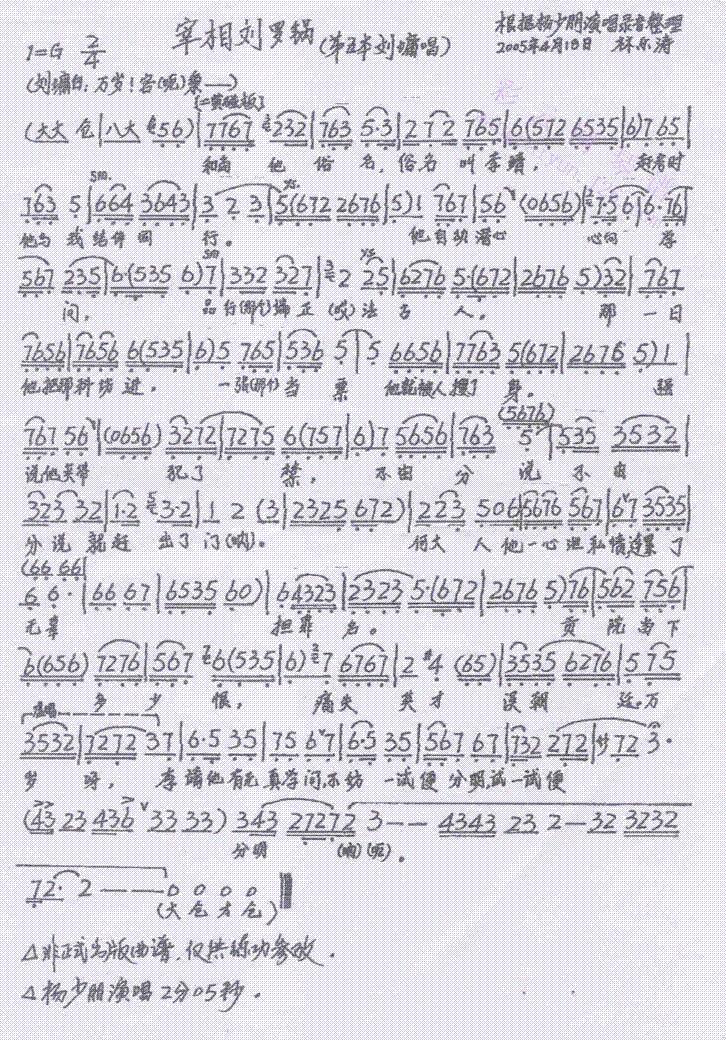 宰相刘罗锅(第五本刘墉唱)
根据杨少朋演唱录音整理
2005年4月18日 林乐涛
1=G 2/4
(刘墉白:万岁!容(呃)禀——)
[二黄碰板]
(大大 仓|八大 56)|7767 232|763 5·3|2 7 2 765|6(572 6535|6)7 65|
和尚 他 俗 名,俗名 叫 李靖, 赶考时
763 5|664 3643|3 2 3|5(672 2676|5)1 767|56 (0656)|75 6|6·76|
他与 我 结伴 同 行。 他自幼 潜心 心向 学
567 235|6·(535 6)7|332 327|2 25|6276 5·(672|2676 5)32|767
问, 品行(那个)端 正 (哎)法 古 人。 那 一日
7656|7656 6(535|6)5 765|536 5|5 6656|7763 5(672|2676 5)1|
一张(那个)当 票 他就被人搜了 身。 强
767 56|(0656) 3272|7275 6(757|6)7 5656|763 5|535 3532|
(5676)
说他夹带 犯了 禁, 不由 分 说 不 由
323 32|1·2 3·2|1 2 (3|2325 672)|223 506|5676 567|6 7 3535|
分说 就赶 出了 门(呐)。 何大 人 他一心 泄私愤连累了
(66 66|
6 6·|66 67|6535 60)|64323|2323 5·(672|2676 5)76|562 756|
无辜 担罪 名。 贡 院 当 下
6(656) 7276|567 6(535|6)7 6767|2 #4 (65)|3535 6276|5 75|
多 少 恨, 痛失 英才 误朝 廷。万
3532|7272 37|6·5 35|75 67|6·5 35|567 67|732 272|72 3·
岁 呀, 李靖他有无真学问,不妨 一试便 分明,试一试便
(43 23 436 33 33) 343 27272 3—— 4343 23 2—32 3232
分明 (呐)(呃)。
72· 2 —— 0 0 0 0
(大 仓 才 仓)
△非正式出版曲谱,仅供练功参改。
△杨少朋演唱 2分05秒。